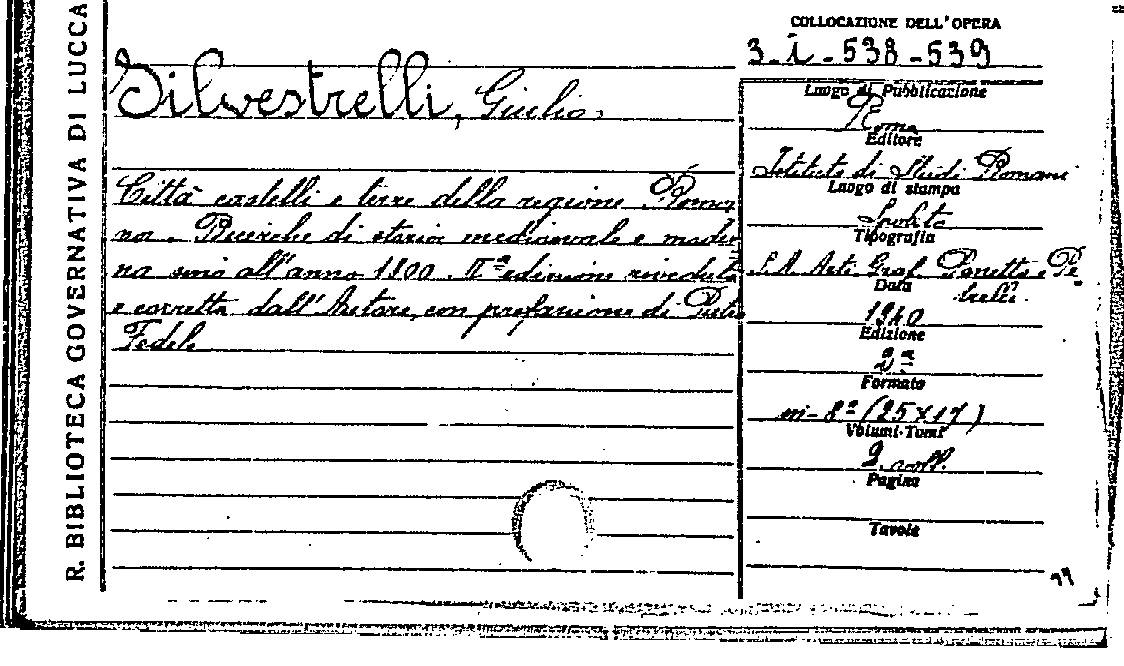 R. BIBLIOTECA GOVERNATIVA DI LUCCA
COLLOCAZIONE DELL'OPERA
3-i-538-539
Silvestrelli, Giulio.
Città castelli e terre della regione Roma
na. Ricerche di storia medioevale e moder
na sino all'anno 1800. IIª edizione riveduta
e corretta dall'Autore, con prefazione di Pietro
Fedele
Luogo di Pubblicazione
Roma
Editore
Istituto di Studi Romani
Luogo di stampa
Spoleto
Tipografia
S.A. Arti Graf. Panetto e Pe
trelli.
Data
1940
Edizione
2ª
Formato
in-8° (25x17)
Volumi-Tomi
2 voll.
Pagine
Tavole